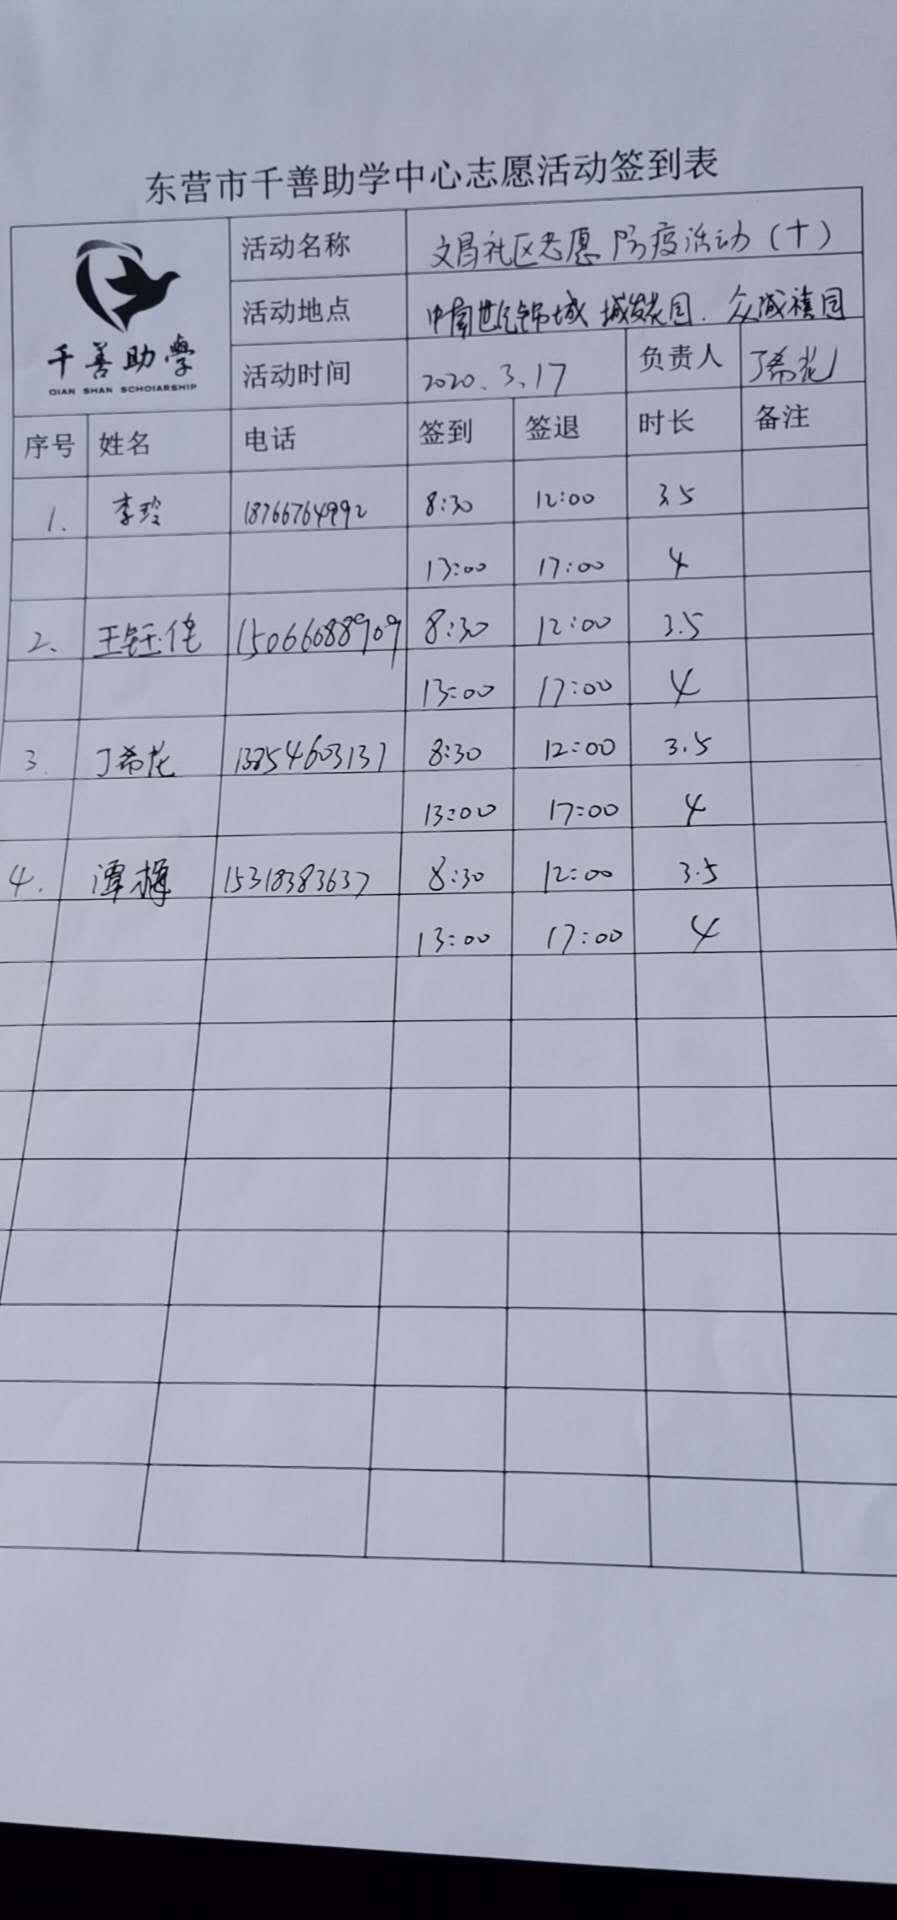 东营市千善助学中心志愿活动签到表
千善助学
QIAN SHAN SCHOIARSHIP
活动名称 文昌社区志愿防疫活动（十）
活动地点 中南世纪锦城 城发花园. 众成禧园
活动时间 2020.3.17 负责人 丁希花
序号 姓名 电话 签到 签退 时长 备注
1. 李玲 18766764992 8:30 12:00 3.5
13:00 17:00 4
2. 王钰佬 15066088909 8:30 12:00 3.5
13:00 17:00 4
3. 丁希花 13854603137 8:30 12:00 3.5
13:00 17:00 4
4. 潭梅 15318383637 8:30 12:00 3.5
13:00 17:00 4